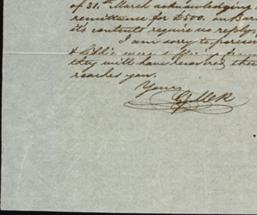 of 31.st March acknowledging
remittance for £500. on Bar
its contents require no reply.
I am sorry to perceive
they will have recovered, the
reaches you.
Yours